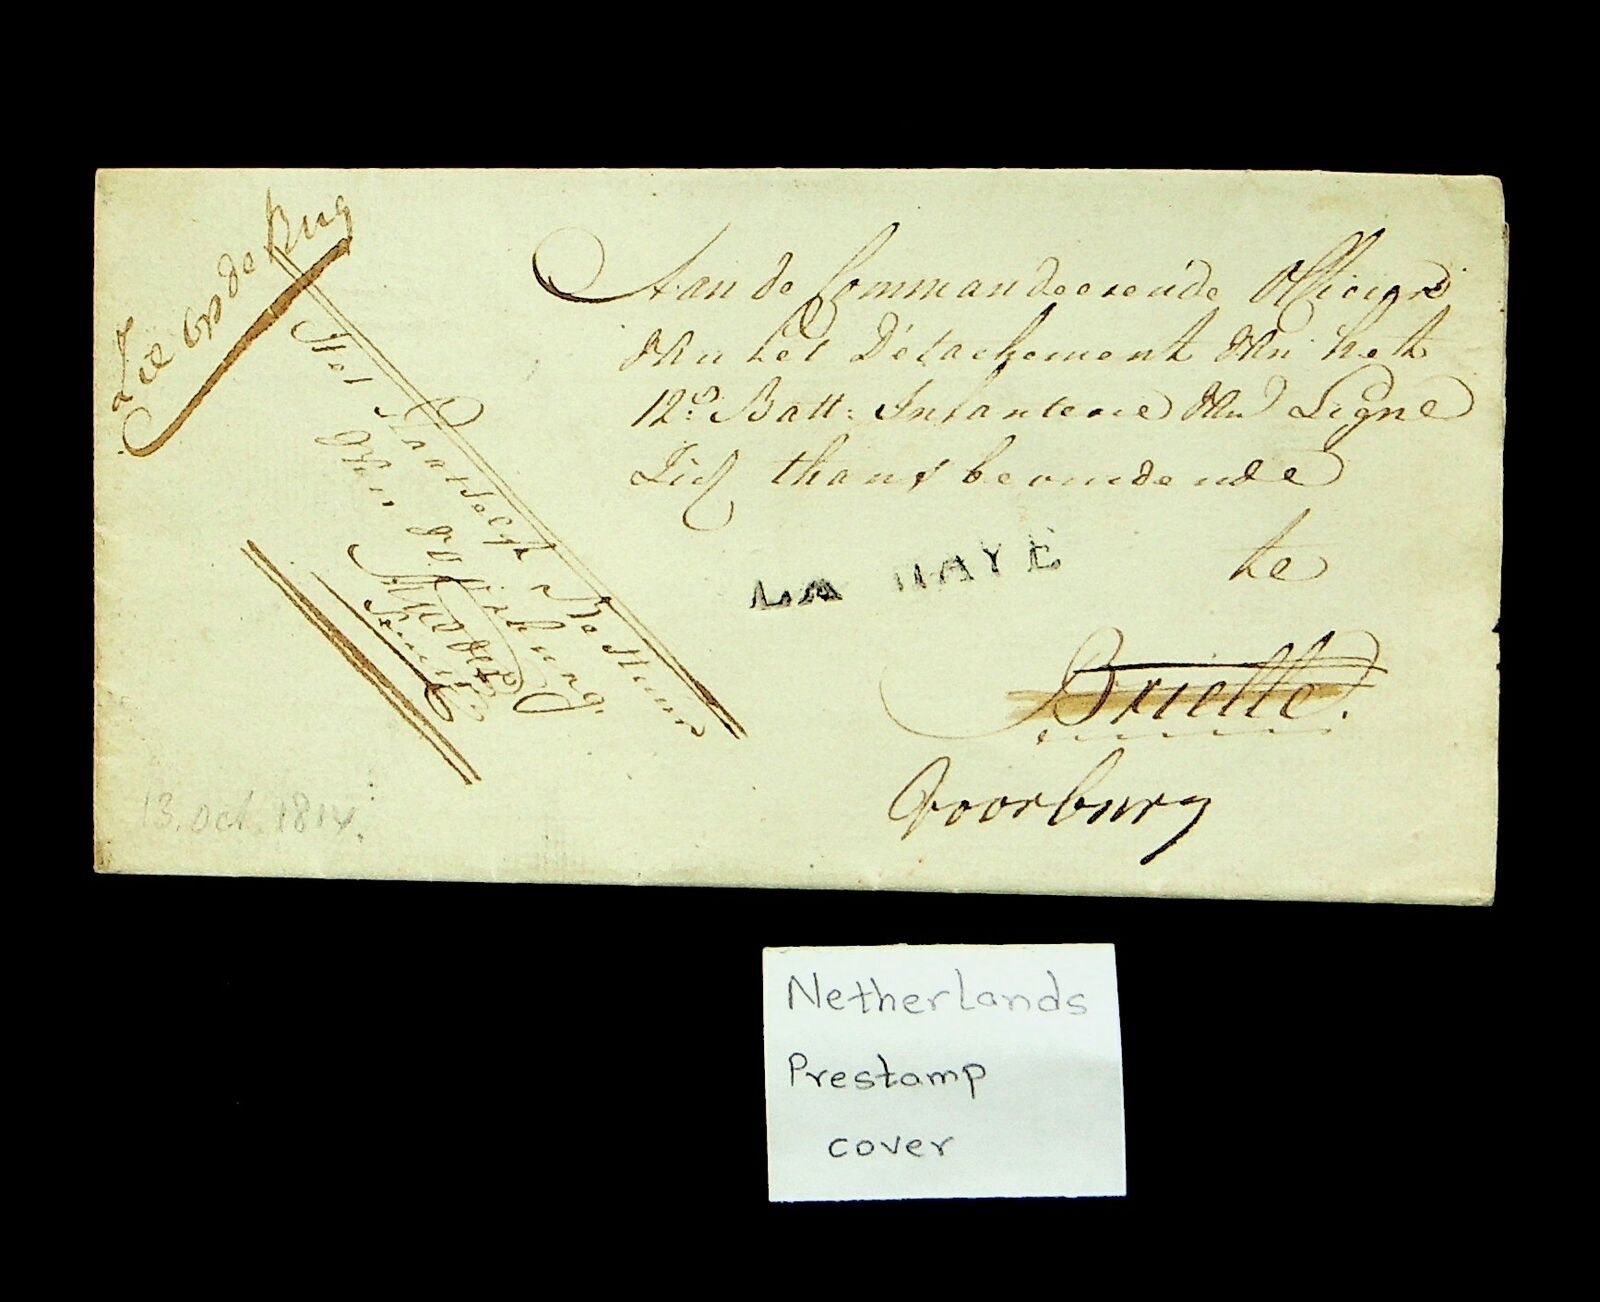 Zie op de Rug
Aan de Commandeerende Officier
van het Détachement van het
12e Batt: Infanterie van Ligne
Zich thans bevindende
te
Brielle.
Voorburg
LA HAYE
Het Plaatselyk Bestuur
van Voorburg.
13. Oct. 1814.
Netherlands
Prestamp
cover